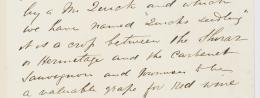 by a Mr Quick and which
we have named "Quicks Seedling"
it is a cross between the Shiraz
or Hermitage and the Carbenet
Sauvegnon and promises to be
a valuable grape for Red wine